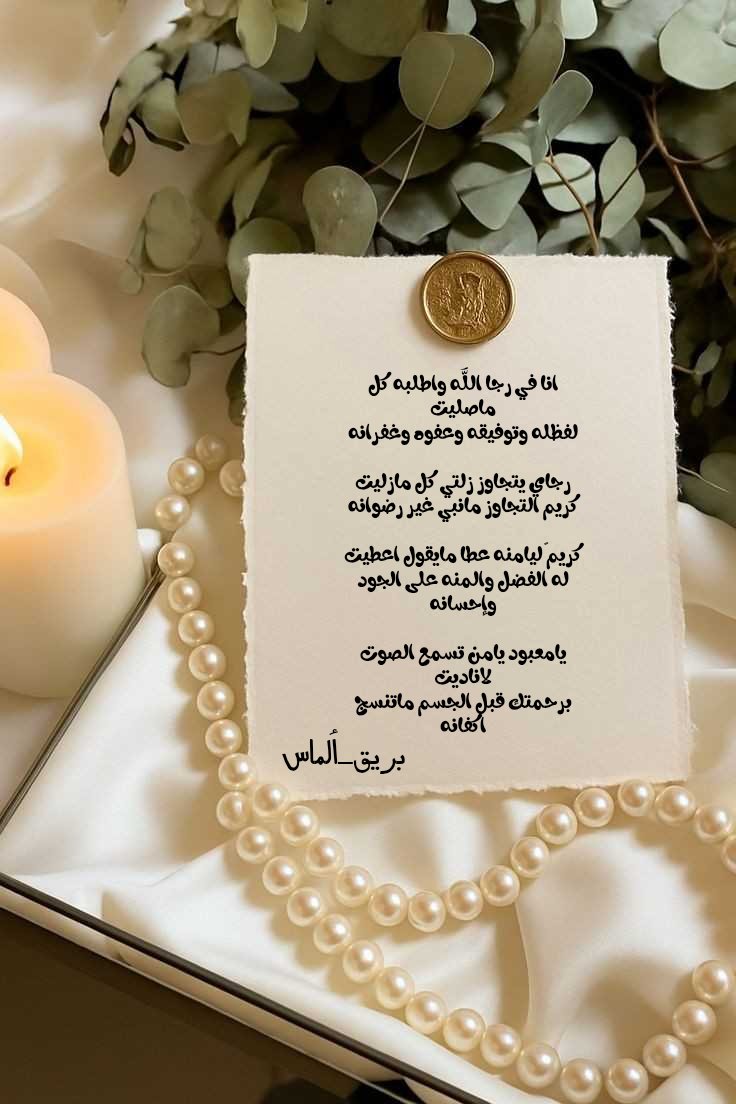 انا في رجا اللَّه واطلبه كل
ماصليت
لفظله وتوفيقه وعفوه وغفرانه
رجاي يتجاوز زلتي كل مازليت
كريم التجاوز مانبي غير رضوانه
كريمَ ليامنه عطا مايقول اعطيت
له الفضل والمنه على الجود
وإحسانه
يامعبود يامن تسمع الصوت
لاناديت
برحمتك قبل الجسم ماتنسج
اكفانه
بريق_ألماس